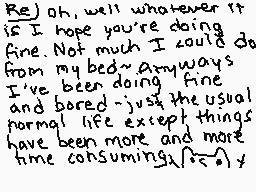 Re) Oh, well whatever it
is I hope you're doing
fine. Not much I could do
from my bed~ Anyways
I've been doing fine
and bored - just the usual
normal life except things
have been more and more
time consuming